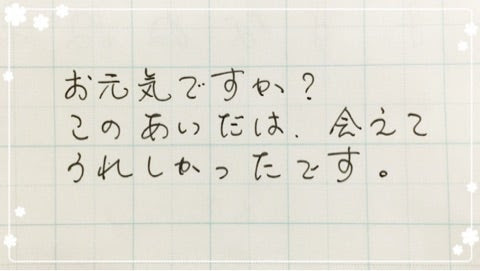 お元気ですか?
このあいだは、会えて
うれしかったです。